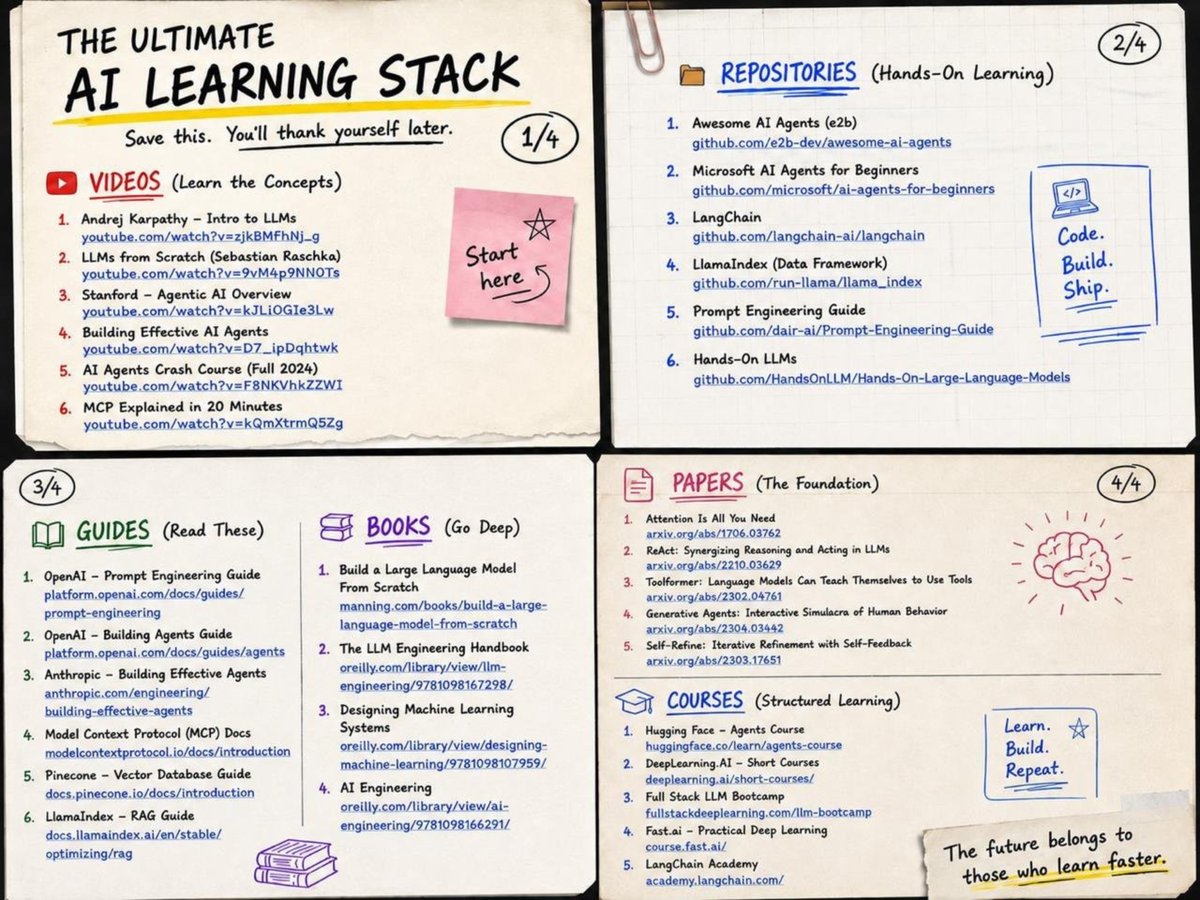 THE ULTIMATE
AI LEARNING STACK
Save this. You'll thank yourself later.
1/4
VIDEOS (Learn the Concepts)
1. Andrej Karpathy – Intro to LLMs
youtube.com/watch?v=zjkBMFhNj_g
2. LLMs from Scratch (Sebastian Raschka)
youtube.com/watch?v=9vM4p9NN0Ts
3. Stanford – Agentic AI Overview
youtube.com/watch?v=kJLiOGIe3Lw
4. Building Effective AI Agents
youtube.com/watch?v=D7_ipDqhtwk
5. AI Agents Crash Course (Full 2024)
youtube.com/watch?v=F8NKVhkZZWI
6. MCP Explained in 20 Minutes
youtube.com/watch?v=kQmXtrmQ5Zg
Start
here
2/4
REPOSITORIES (Hands-On Learning)
1. Awesome AI Agents (e2b)
github.com/e2b-dev/awesome-ai-agents
2. Microsoft AI Agents for Beginners
github.com/microsoft/ai-agents-for-beginners
3. LangChain
github.com/langchain-ai/langchain
4. LlamaIndex (Data Framework)
github.com/run-llama/llama_index
5. Prompt Engineering Guide
github.com/dair-ai/Prompt-Engineering-Guide
6. Hands-On LLMs
github.com/HandsOnLLM/Hands-On-Large-Language-Models
</>
Code.
Build.
Ship.
3/4
GUIDES (Read These)
1. OpenAI – Prompt Engineering Guide
platform.openai.com/docs/guides/
prompt-engineering
2. OpenAI – Building Agents Guide
platform.openai.com/docs/guides/agents
3. Anthropic – Building Effective Agents
anthropic.com/engineering/
building-effective-agents
4. Model Context Protocol (MCP) Docs
modelcontextprotocol.io/docs/introduction
5. Pinecone – Vector Database Guide
docs.pinecone.io/docs/introduction
6. LlamaIndex – RAG Guide
docs.llamaindex.ai/en/stable/
optimizing/rag
BOOKS (Go Deep)
1. Build a Large Language Model
From Scratch
manning.com/books/build-a-large-
language-model-from-scratch
2. The LLM Engineering Handbook
oreilly.com/library/view/llm-
engineering/9781098167298/
3. Designing Machine Learning
Systems
oreilly.com/library/view/designing-
machine-learning/9781098107959/
4. AI Engineering
oreilly.com/library/view/ai-
engineering/9781098166291/
4/4
PAPERS (The Foundation)
1. Attention Is All You Need
arxiv.org/abs/1706.03762
2. ReAct: Synergizing Reasoning and Acting in LLMs
arxiv.org/abs/2210.03629
3. Toolformer: Language Models Can Teach Themselves to Use Tools
arxiv.org/abs/2302.04761
4. Generative Agents: Interactive Simulacra of Human Behavior
arxiv.org/abs/2304.03442
5. Self-Refine: Iterative Refinement with Self-Feedback
arxiv.org/abs/2303.17651
COURSES (Structured Learning)
1. Hugging Face – Agents Course
huggingface.co/learn/agents-course
2. DeepLearning.AI – Short Courses
deeplearning.ai/short-courses/
3. Full Stack LLM Bootcamp
fullstackdeeplearning.com/llm-bootcamp
4. Fast.ai – Practical Deep Learning
course.fast.ai/
5. LangChain Academy
academy.langchain.com/
Learn.
Build.
Repeat.
The future belongs to
those who learn faster.